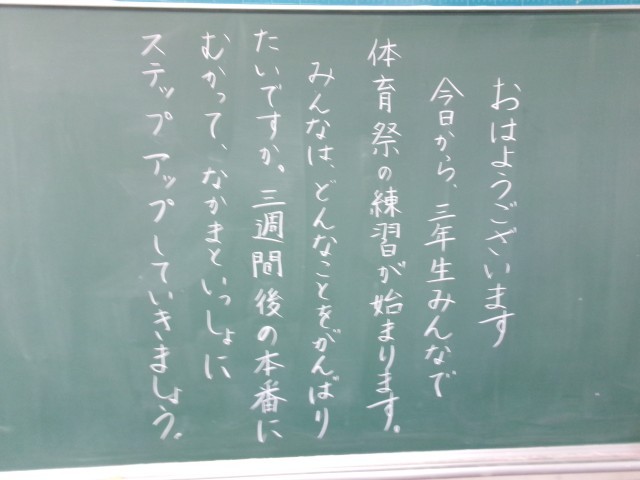 おはようございます
今日から、三年生みんなで
体育祭の練習が始まります。
みんなは、どんなことをがんばり
たいですか。三週間後の本番に
むかって、なかまといっしょに
ステップアップしていきましょう。